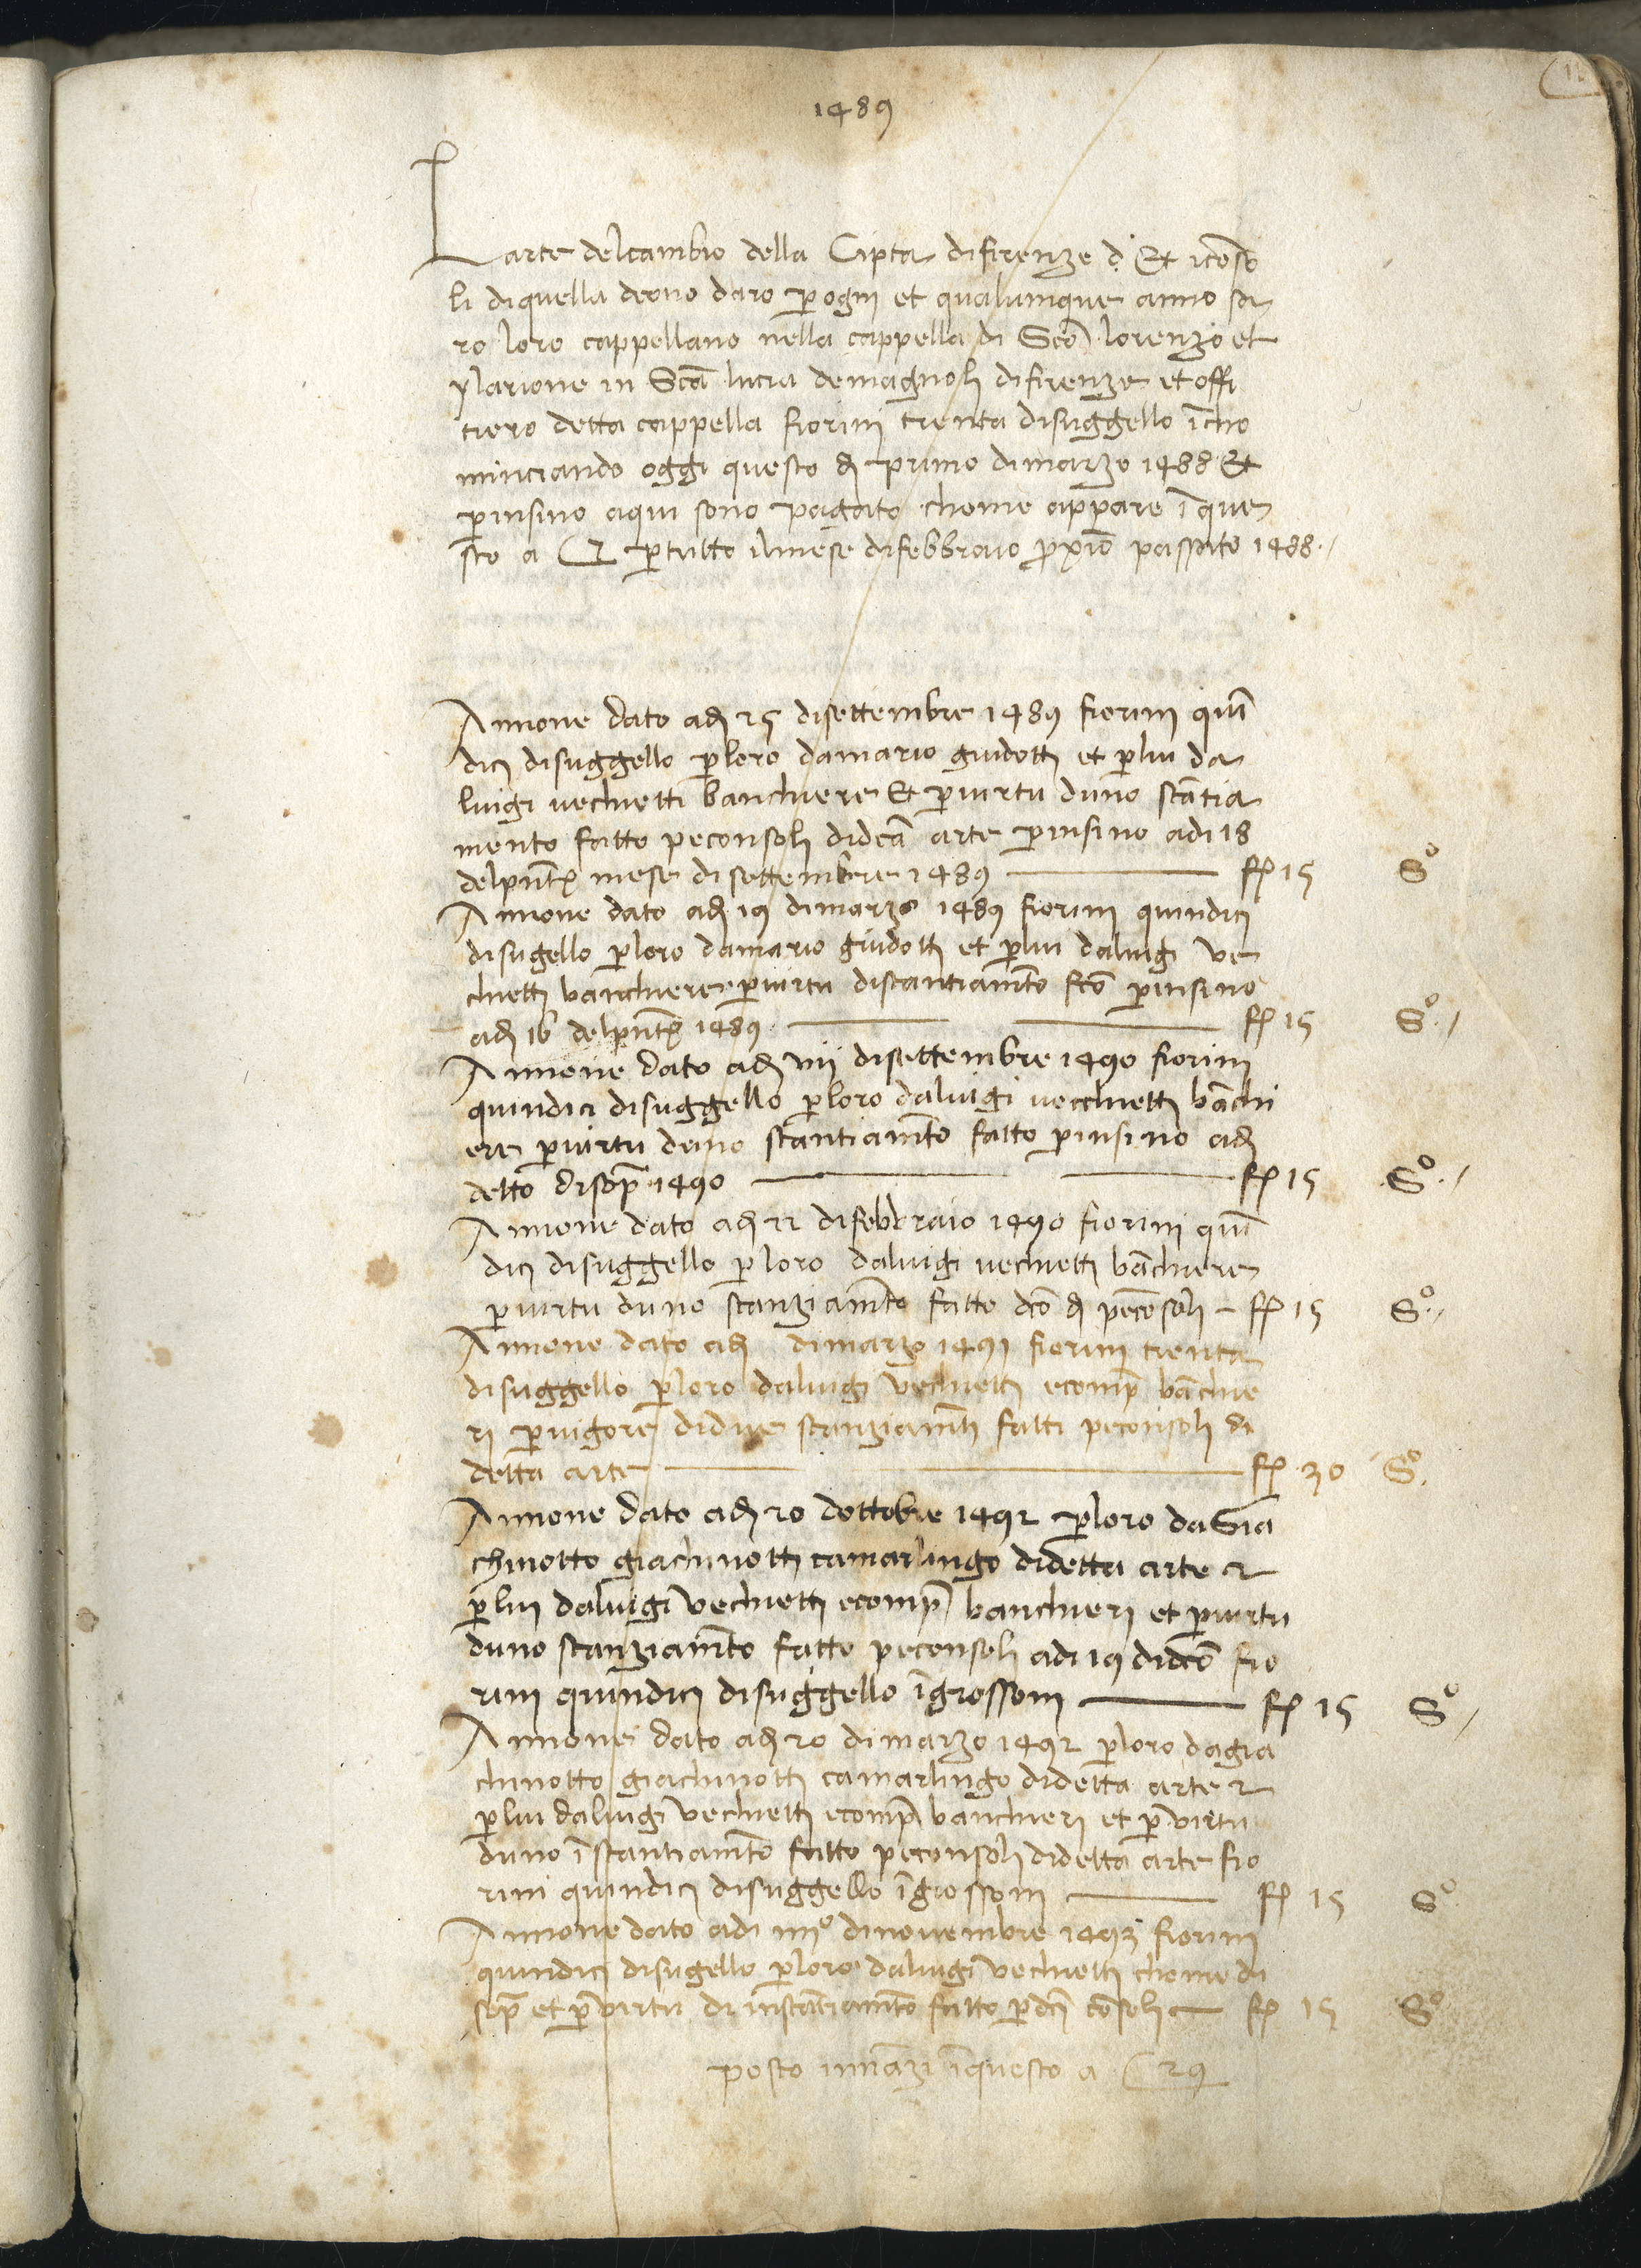 1489
Larte delcambio della Cipta difirenze d. Et icōso
li diquella deono daro p ogni et qualumque anno sa
ro loro cappellano nella cappella di Scō lorenzo et
ylarione in Scā lucia demagnoli difirenze et offi
tiero detta cappella fiorini trenta disuggello ī cho
minciando oggi questo dì primo dimarzo 1488 Et
pinsino aqui sono pagato chome appare ī que
sto a C ptutto ilmese difebbraio pxiō passato 1488.
Annone dato adì 25 disettembre 1489 fiorini quī
dici disuggello ploro damario guidotti et plui da
luigi uechietti banchiere Et puirtu duno stātia
mento fatto peconsoli didcā arte pinsino adi 18
delpnte mese di settembre 1489 — f 15 So
Annone dato adì 19 dimarzo 1489 fiorini quindici
disugello ploro damario guidotti et plui daluigi ve
chietti banchiere puirtu distantiamto fcō pinsino
adì 16 delpnte 1489 — f 15 So
Annone dato adì viij disettembre 1490 fiorini
quindici disuggello ploro daluigi uecchietti bāchi
ere puirtu duno stantiamto fatto pinsino adì
detto disop 1490 — f 15 So
Annone dato adì 22 difebbraio 1490 fiorini quī
dici disuggello ploro daluigi uechietti bāchiere
puirtu duno stanziamto fatto dcō dì pecōsoli — f 15 So
Annone dato adì dimarzo 1491 fiorini trenta
disuggello ploro daluigi vechietti ecomp bāchie
ri puigore didue stanziamti fatti peconsoli di
detta arte — f 30 So
Annone dato adì 20 dottobre 1492 ploro da Gia
chinotto giachinotti camarlingo didetta arte et
plui daluigi vechietti ecomp banchieri et puirtu
duno stanziamto fatto peconsoli adi 19 didcō fio
rini quindici disuggello ī grossoni — f 15 So
Annone dato adì 20 dimarzo 1492 ploro dagia
chinotto giachinotti camarlingo didetta arte et
plui daluigi vechietti ecomp banchieri et p virtu
duno īstantiamto fatto peconsoli didetta arte fio
rini quindici disuggello ī grossoni — f 15 So
Annone dato adi iiijo dinouembre 1493 fiorini
quindici disugello ploro daluigi vechietti chome di
sop et p virtu di instātiamto fatto pdci cōsoli — f 15 So
posto innāzi ī questo a C 29